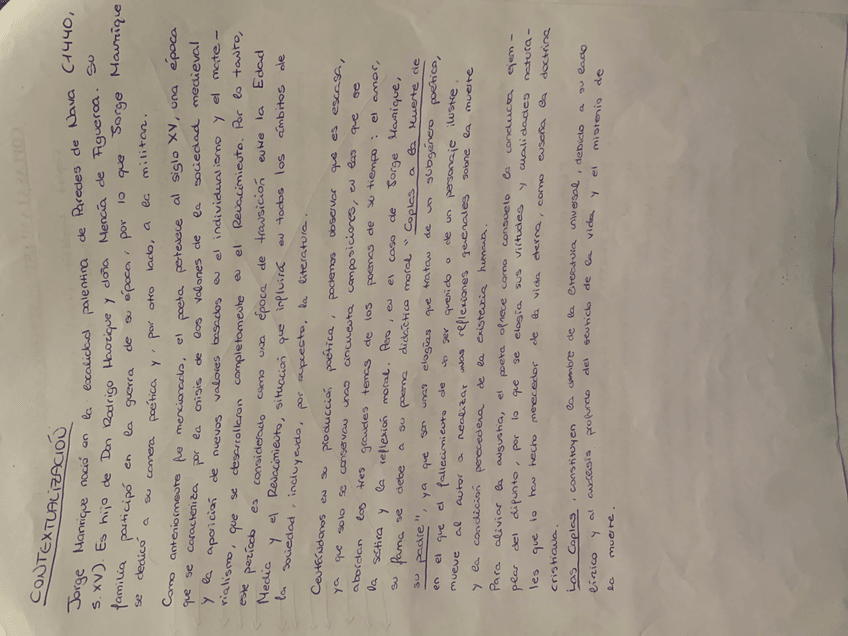 CONTEXTUALIZACIÓN
Jorge Manrique nació en la localidad palentina de Paredes de Nava (1440,
s. XV). Es hijo de Don Rodrigo Manrique y doña Mencía de Figueroa. Su
familia participó en la guerra de su época, por lo que Jorge Manrique
se dedicó a su carrera poética y, por otro lado, a la militar.
Como anteriormente fue mencionado, el poeta pertenece al siglo XV, una época
que se caracteriza por la crisis de los valores de la sociedad medieval
y la aparición de nuevos valores basados en el individualismo y el mate-
rialismo, que se desarrollaron completamente en el Renacimiento. Por lo tanto,
este período es considerado como una época de transición entre la Edad
Media y el Renacimiento, situación que influirá en todos los ámbitos de
la sociedad, incluyendo, por supuesto, la literatura.
Centrándonos en su producción poética, podemos observar que es escasa,
ya que solo se conservan unas cincuenta composiciones, en las que se
abordan los tres grandes temas de los poemas de su tiempo: el amor,
la sátira y la reflexión moral. Pero, en el caso de Jorge Manrique,
su fama se debe a su poema didáctico moral "Coplas a la Muerte de
su padre", ya que son unas elegías que tratan de un subgénero poético,
en el que el fallecimiento de un ser querido o de un personaje ilustre
mueve al autor a realizar unas reflexiones generales sobre la muerte
y la condición perecedera de la existencia humana.
Para aliviar la angustia, el poeta ofrece como consuelo la conducta ejem-
plar del difunto, por lo que se elogia sus virtudes y cualidades natura-
les que lo han hecho merecedor de la vida eterna, como enseña la doctrina
cristiana.
Las Coplas, constituyen la cumbre de la literatura universal, debido a su lado
lírico y al análisis profundo del sentido de la vida y el misterio de
la muerte.